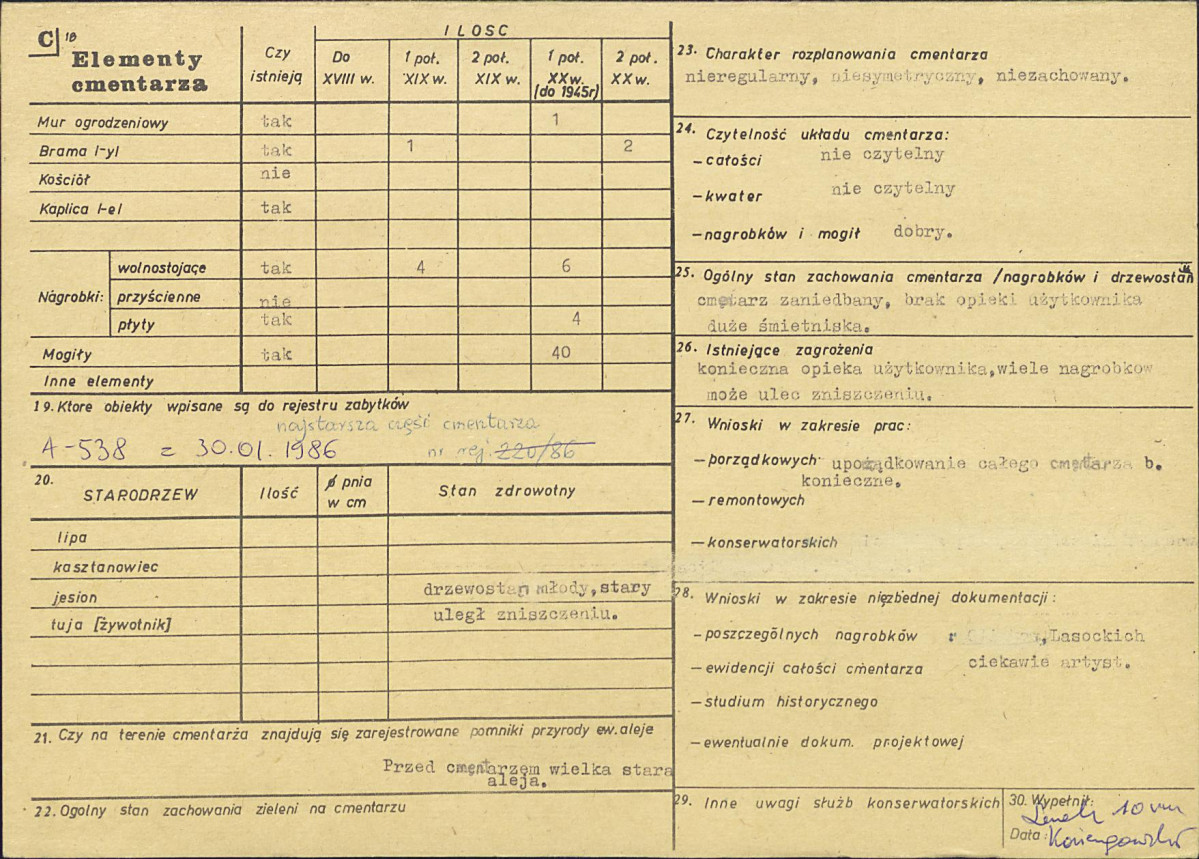 C 18
Elementy
cmentarza
Czy
istnieją
ILOSC
Do
XVIII w.
1 poł.
XIX w.
2 poł.
XIX w.
1 poł.
XX w.
(do 1945r)
2 poł.
XX w.
Mur ogrodzeniowy tak 1
Brama l-yl tak 1 2
Kościół nie
Kaplica l-el tak
Nagrobki:
wolnostojące tak 4 6
przyścienne nie
płyty tak 4
Mogiły tak 40
Inne elementy
19. Ktore obiekty wpisane są do rejestru zabytków
najstarsza część cmentarza
A-538 z 30.01.1986 nr rej. 220/86
20. STARODRZEW
Ilość
ø pnia
w cm
Stan zdrowotny
lipa
kasztanowiec
jesion drzewostan młody, stary
tuja [żywotnik] uległ zniszczeniu.
21. Czy na terenie cmentarża znajdują się zarejestrowane pomniki przyrody ew. aleje
Przed cmentarzem wielka stara
aleja.
22. Ogolny stan zachowania zieleni na cmentarzu
23. Charakter rozplanowania cmentarza
nieregularny, niesymetryczny, niezachowany.
24. Czytelność układu cmentarza:
- całości nie czytelny
- kwater nie czytelny
- nagrobków i mogił dobry.
25. Ogólny stan zachowania cmentarza /nagrobków i drzewostan
cmętarz zaniedbany, brak opieki użytkownika
duże śmietniska.
26. Istniejące zagrożenia
konieczna opieka użytkownika, wiele nagrobkow
może ulec zniszczeniu.
27. Wnioski w zakresie prac:
- porządkowych upoządkowanie całego cmentarza b.
konieczne.
- remontowych
- konserwatorskich
28. Wnioski w zakresie niezbędnej dokumentacji:
- poszczególnych nagrobków , Lasockich
- ewidencji całości cmentarza ciekawie artyst.
- studium historycznego
- ewentualnie dokum. projektowej
29. Inne uwagi służb konserwatorskich
30. Wypełnił:
Data: